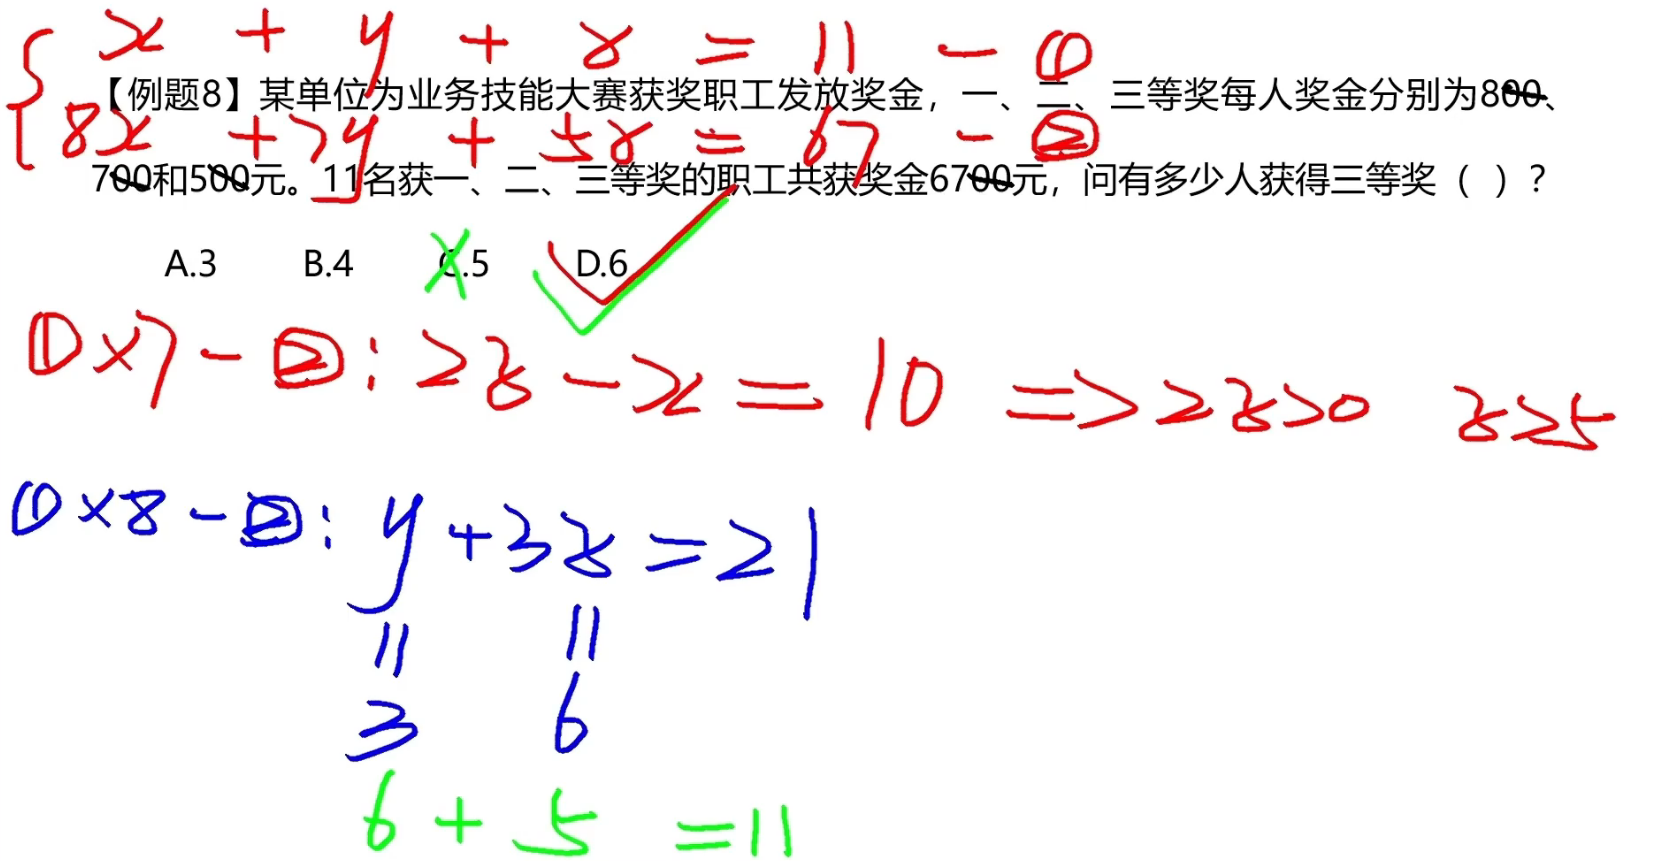 x + y + z = 11 — ①
【例题8】某单位为业务技能大赛获奖职工发放奖金，一、二、三等奖每人奖金分别为800、
8x + 7y + 5z = 67 — ②
700和500元。11名获一、二、三等奖的职工共获奖金6700元，问有多少人获得三等奖（ ）？
A.3 B.4 C.5 D.6
①×7-②: 2z-x=10 => 2z>0 z≥5
①×8-②: y+3z=21
= =
3 6
6+5=11